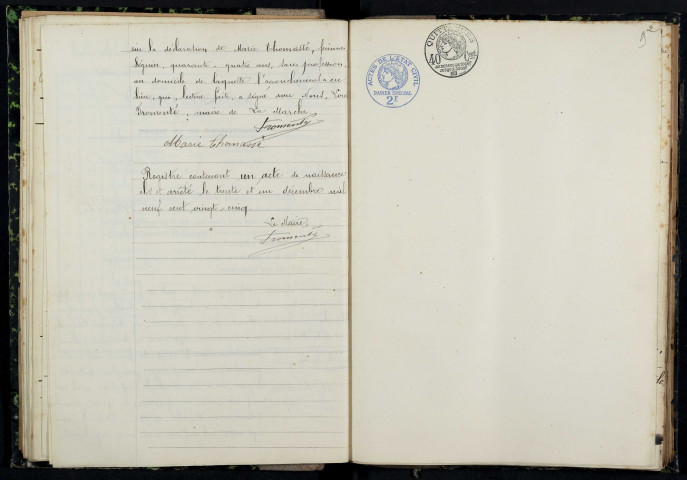 sur la déclaration de Marie Thomassé, femme
Séguin, quarante-quatre ans, sans profession
au domicile de laquelle l'accouchement a eu
lieu, qui, lecture faite, a signé avec Nous,
Fromenté, maire de La Marche
Fromenté
Marie Thomassé
Registre contenant un acte de naissance
clos et arrêté le trente et un décembre mil
neuf cent vingt-cinq
Le Maire,
Fromenté
ACTES DE L'ETAT CIVIL
PAPIER SPECIAL
2F
40